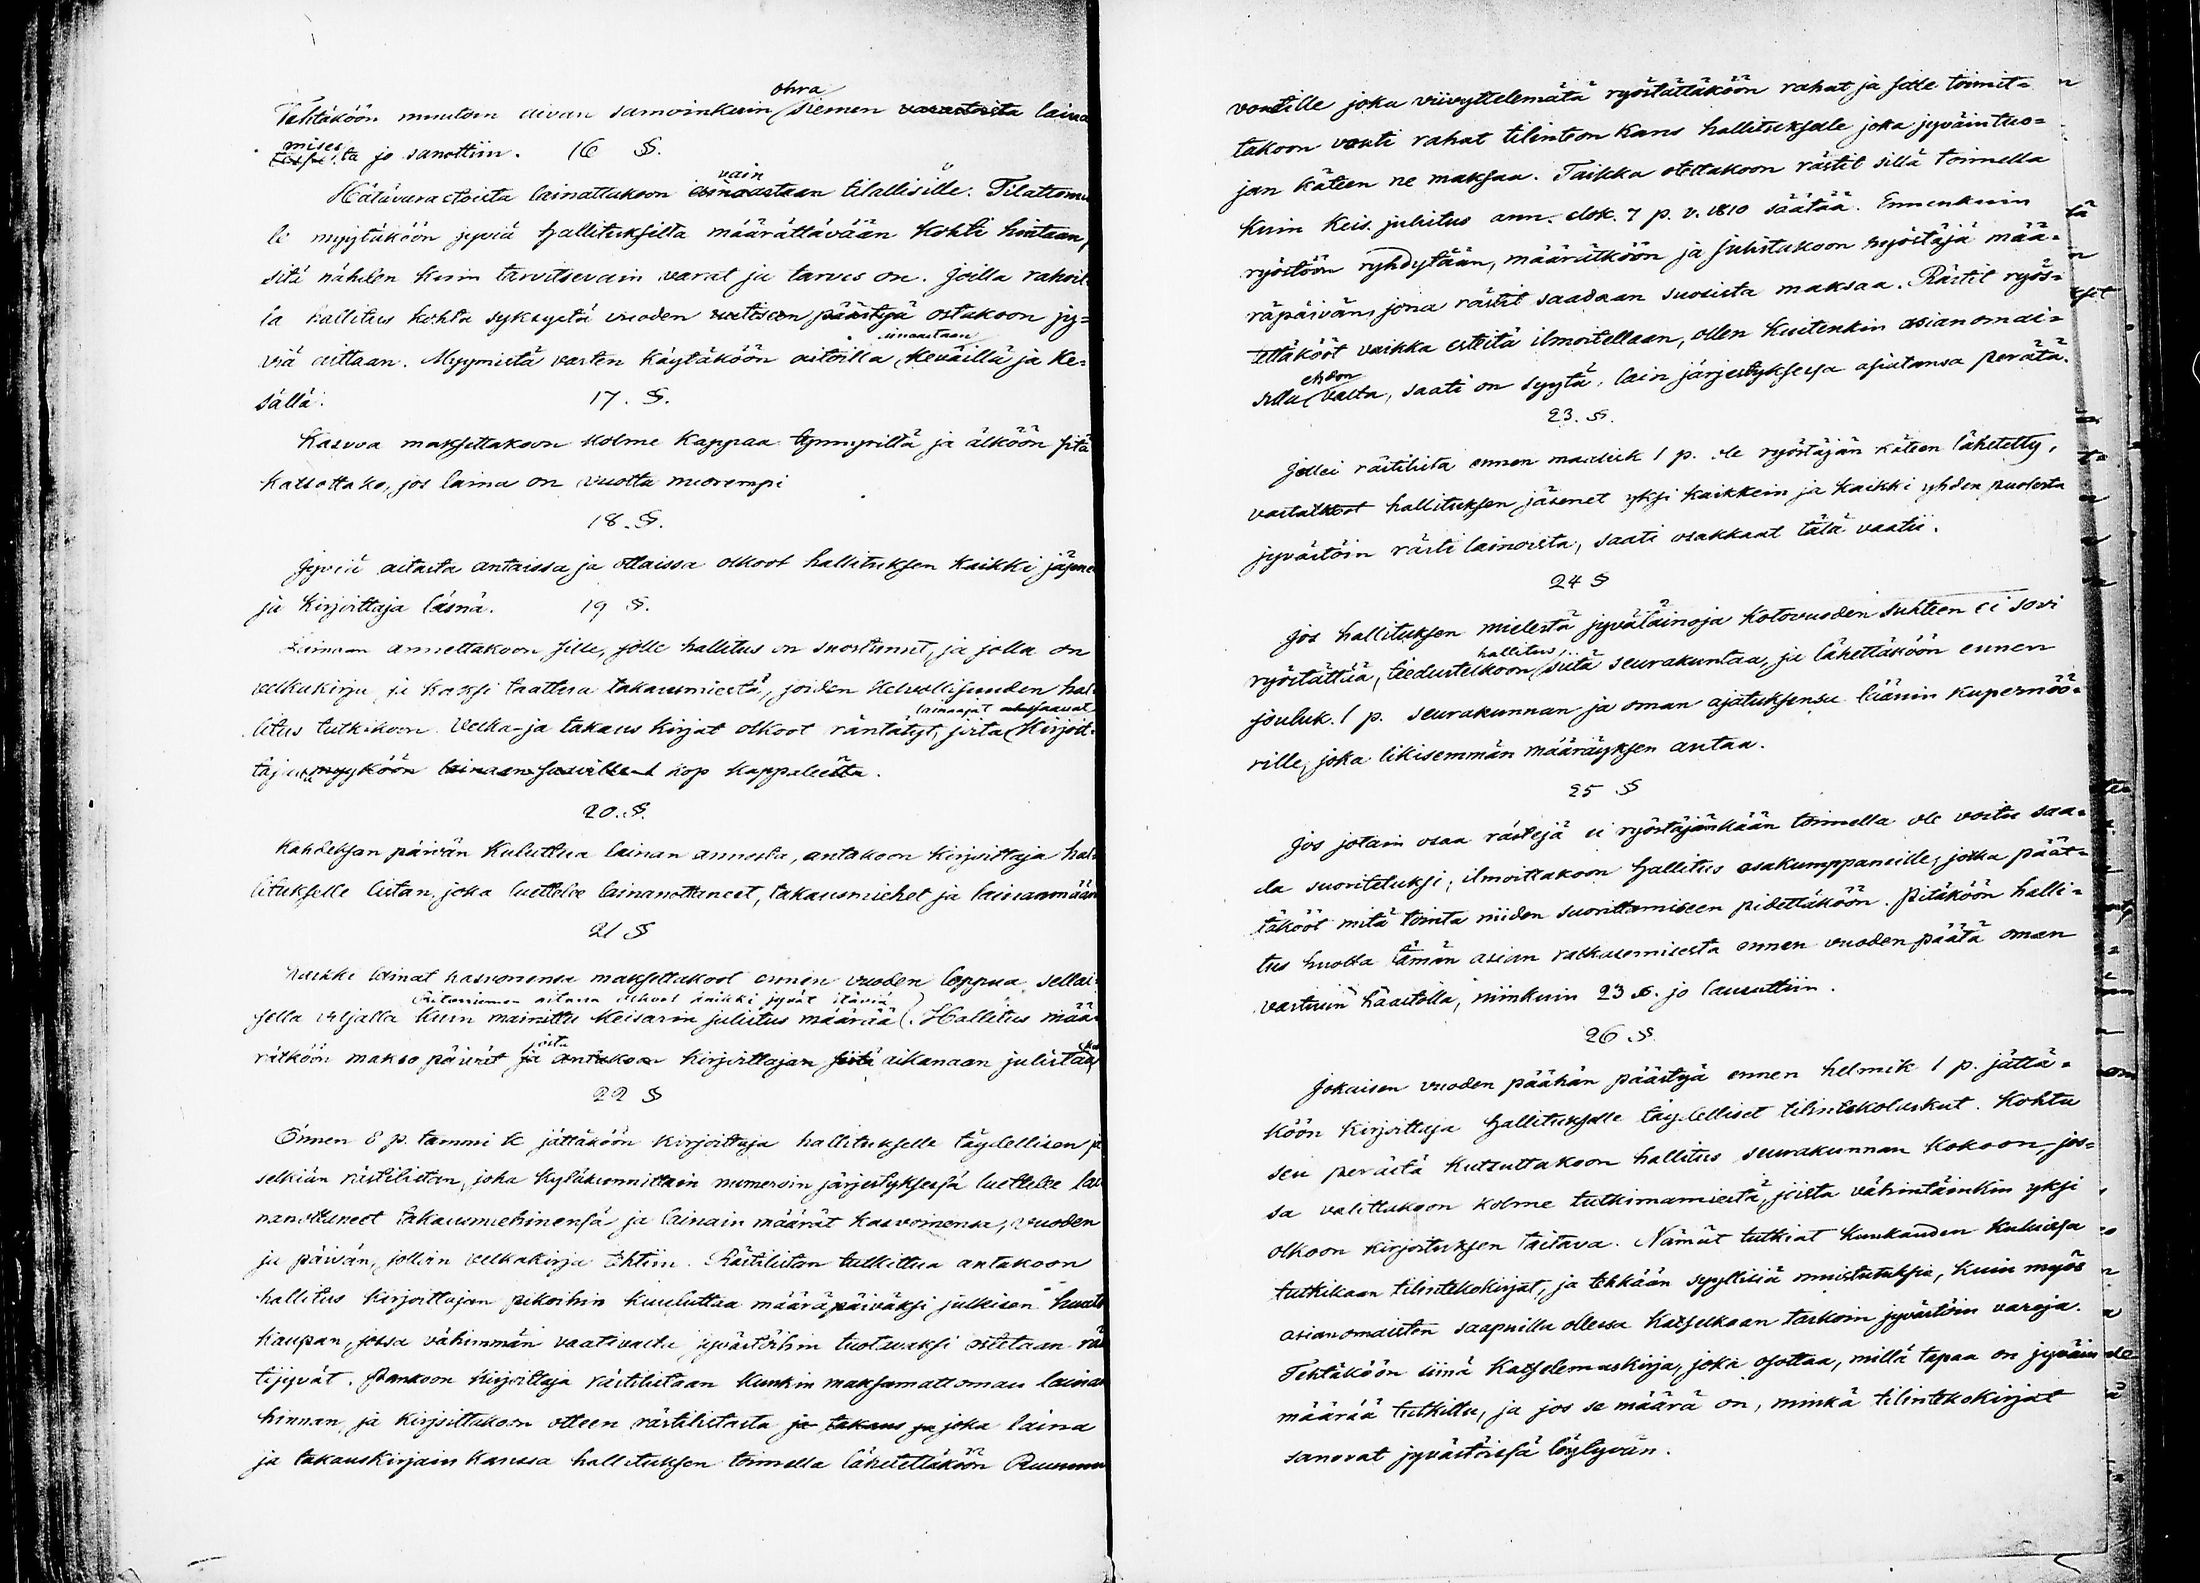 ohra
Tehtäköön muutoin aivan samoinkuin siemen varastoista laina
mises
ta jo sanottiin. 16 §.
vain
Hätävarastoista lainattakoon ainoastaan tilallisille. Tilattomil
le myytäköön jyviä hallitukselta määrättävään kohti hintaan,
sitä nähden kuin tarvitsevain varat ja tarvis on. Joilla rahoil
la hallitus kohta syksystä vuoden uutiseen päästyä ostakoon jy=
ainoastaan
viä aittaan. Myymistä varten käytäköön aitoilla keväillä ja ke=
sällä. 17. §.
Kasvoa maksettakoon kolme kappaa tynnyriltä ja älköön sitä
katsottako, jos laina on vuotta nuorempi
18. §.
Jyviä aitasta antaissa ja ottaissa olkoot hallituksen kaikki jäsene
ja kirjoittaja läsnä. 19 §.
Lainaan annettakoon sille, jolle hallitus on suostunut, ja jolla on
velkakirja ja kaksi taattua takausmiestä, joiden kelvollisuuden hal
lainaajat
litus tutkikoon. Velka- ja takaus kirjat olkoot räntätyt, joita kirjoit-
taja myyköön kop kappaleesta.
20. §.
Kahdeksan päivän kuluttua lainan annosta, antakoon kirjoittaja hal
litukselle listan, joka luettelee lainanottaneet, takausmiehet ja lainanmäärä
21 §
Kaikki lainat kasvonensa maksettakoot ennen vuoden loppua, sellai
aitassa olkoot kaikki jyvät itäviä
sella viljalla kuin mainittu Keisarin julistus määrää. Hallitus mää-
joita
rätköön makso päivät ja antakoon kirjoittajan siitä aikanaan julistaa
22 §
Ennen 8 p. tammi k. jättäköön kirjoittaja hallitukselle täydellisen ja
selkiän rästilistan, joka kyläkunnittain numeroin järjestyksessä luettelee lai
nanottaneet takausmiehinensä ja lainain määrät kasvoinensa, vuoden
ja päivän, jolloin velkakirja tehtiin. Rästilistan tutkittua antakoon
hallitus kirjoittajan pikoihin kuuluttaa määräpäiväksi julkisen huuto
kaupan, jossa vähimmän vaativalta jyvästöihin tuotavaksi ostetaan räs
tijyvät. Pankoon kirjoittaja rästilistaan kunkin maksamattoman lainan
hinnan, ja kirjoittakoon otteen rästilistasta ja takaus ja joka laina
ja takauskirjain kanssa hallituksen toimella lähetettäköön Ruunun
voutille joka viivyttelemätä ryöstättäköön rahat ja sille toimit=
takoon vouti rahat tilinteon kans hallitukselle joka jyväin tuo=
jan käteen ne maksaa. Taikka otettakoon rästit sillä toimella
kuin Keis. julistus ann. elok. 7 p. v. 1810 säätää. Ennenkuin
ryöstöön ryhdytään, määrätköön ja julistakoon ryöstäjä mää=
räpäivän, jona rästit saadaan suosista maksaa. Rästit ryös=
tettäkööt vaikka esteitä ilmoitellaan, ollen kuitenkin asianomai=
ehdon
sella valta, saati on syytä, lain järjestyksessä asiatansa perätä.
23. §.
Jollei rästilista ennen maalisk 1 p. ole ryöstäjän käteen lähetetty,
vastatkoot hallituksen jäsenet yksi kaikkein ja kaikki yhden puolesta
jyvästöin rästi lainoista, saati osakkaat tätä vaatii.
24 §
Jos hallituksen mielestä jyvälainoja kotovuoden suhteen ei sovi
hallitus
ryöstättää, tiedustelkoon siitä seurakuntaa, ja lähettäköön ennen
jouluk. 1 p. seurakunnan ja oman ajatuksensa läänin kupernöö=
rille, joka likisemmän määräyksen antaa.
25 §
Jos jotain osaa rästejä ei ryöstäjänkään toimella ole voitu saa=
da suoritetuksi, ilmoittakoon hallitus osakumppaneille, jotka päät=
täkööt mitä tointa niiden suorittamiseen pidettäköön. Pitäköön halli=
tus huolta tämän asian ratkasemisesta ennen vuoden päätä oman
vastuun häätöllä, niinkuin 23 §. jo lausuttiin.
26 §.
Jokaisen vuoden päähän päästyä ennen helmik 1 p. jättä=
köön kirjoittaja hallitukselle täydelliset tilintekolaskut. Kohta
sen perästä kutsuttakoon hallitus seurakunnan kokoon, jos=
sa valittakoon kolme tutkimamiestä, joista vähintäinkin yksi
olkoon kirjoituksen taitava. Nämät tutkiat kuukauden kuluissa
tutkikaan tilintekokirjat, ja tehkään syyllisiä muistutuksia, kuin myös
asianomaisten saapuilla ollessa katselkaan tarkoin jyvästöin varoja.
Tehtäköön siinä katselemuskirja, joka osottaa, millä tapaa on jyväin
määrää tutkittu, ja jos se määrä on, minkä tilintekokirjat
sanovat jyvästöissä löytyvän.